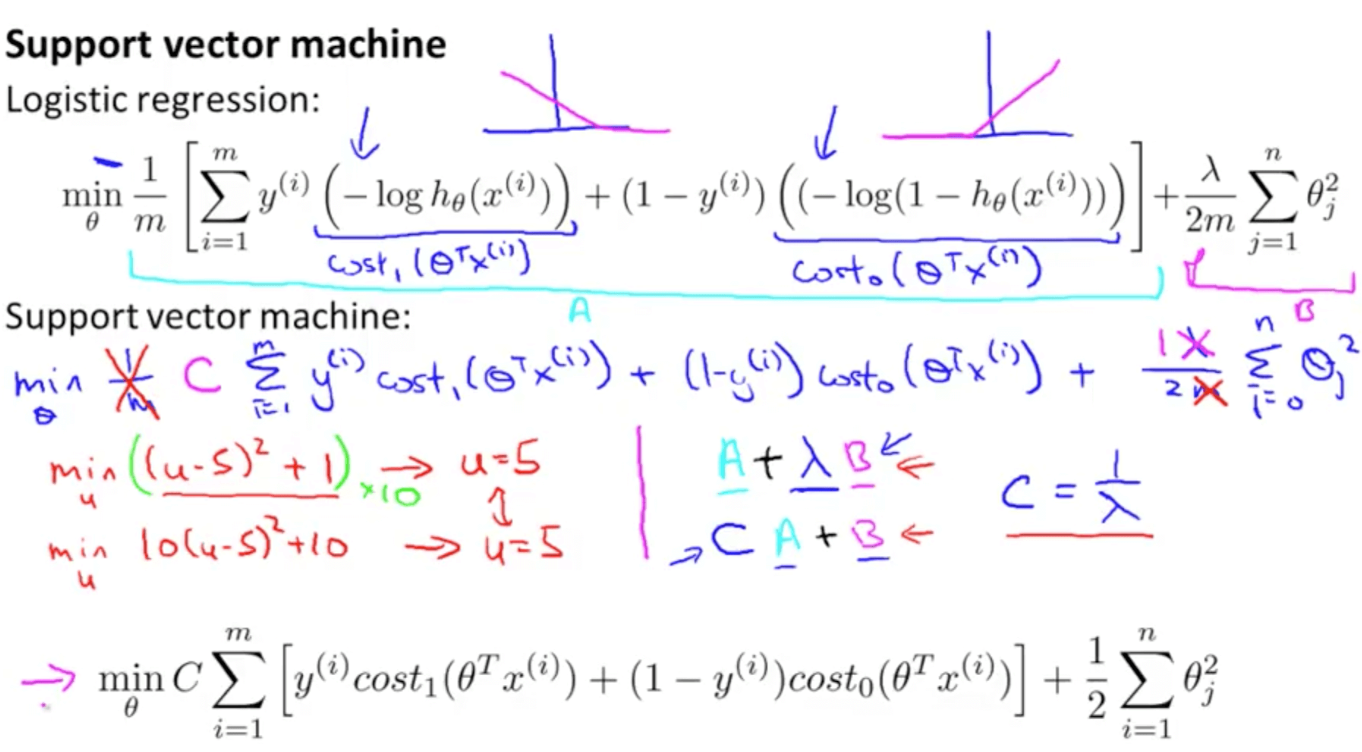 Support vector machine
Logistic regression:
min_θ 1/m [ Σ_{i=1}^{m} y^{(i)} (−log h_θ(x^{(i)})) + (1 − y^{(i)}) ((−log(1 − h_θ(x^{(i)}))) ] + λ/2m Σ_{j=1}^{n} θ_j^2
cost_1(θ^T x^{(i)}) cost_0(θ^T x^{(i)})
A B
Support vector machine:
min_θ 1/m C Σ_{i=1}^{m} y^{(i)} cost_1(θ^T x^{(i)}) + (1-y^{(i)}) cost_0(θ^T x^{(i)}) + 1 λ/2m Σ_{i=0}^{n} θ_j^2
min_u ((u-5)^2 + 1) ×10 → u=5
min_u 10(u-5)^2+10 → u=5
A + λ B ←
→ C A + B ←
C = 1/λ
→ min_θ C Σ_{i=1}^{m} [ y^{(i)} cost_1(θ^T x^{(i)}) + (1 − y^{(i)}) cost_0(θ^T x^{(i)}) ] + 1/2 Σ_{i=1}^{n} θ_j^2